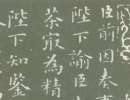 臣前因奏事
陛下諭
茶㝡為精
陛下知鑒